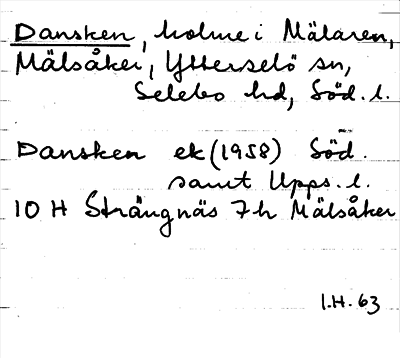 Dansken, holme i Mälaren,
Mälsåker, Ytterselö sn,
Selebo hd, Söd. l.
Dansken ek (1958) Söd.
samt Upps. l.
10 H Strängnäs 7h Mälsåker
I.H. 63